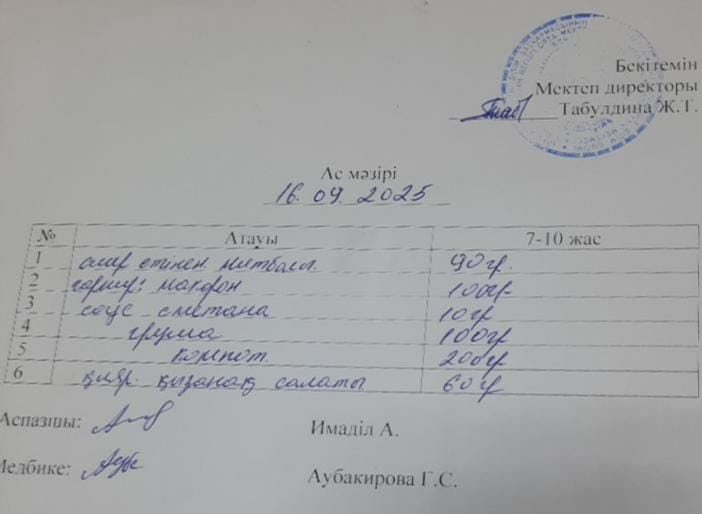 Бекітемін
Мектеп директоры
Табулдина Ж.Т.
Ас мәзірі
16.09.2025
№ Атауы 7-10 жас
1 сиыр етінен митболл 90гр.
2 гарнир: макарон 100гр
3 соус сметана 10гр
4 груша 100гр
5 компот 200гр
6 қияр. қызанақ салаты 60гр
Аспазшы: Имаділ А.
Медбике: Аубакирова Г.С.